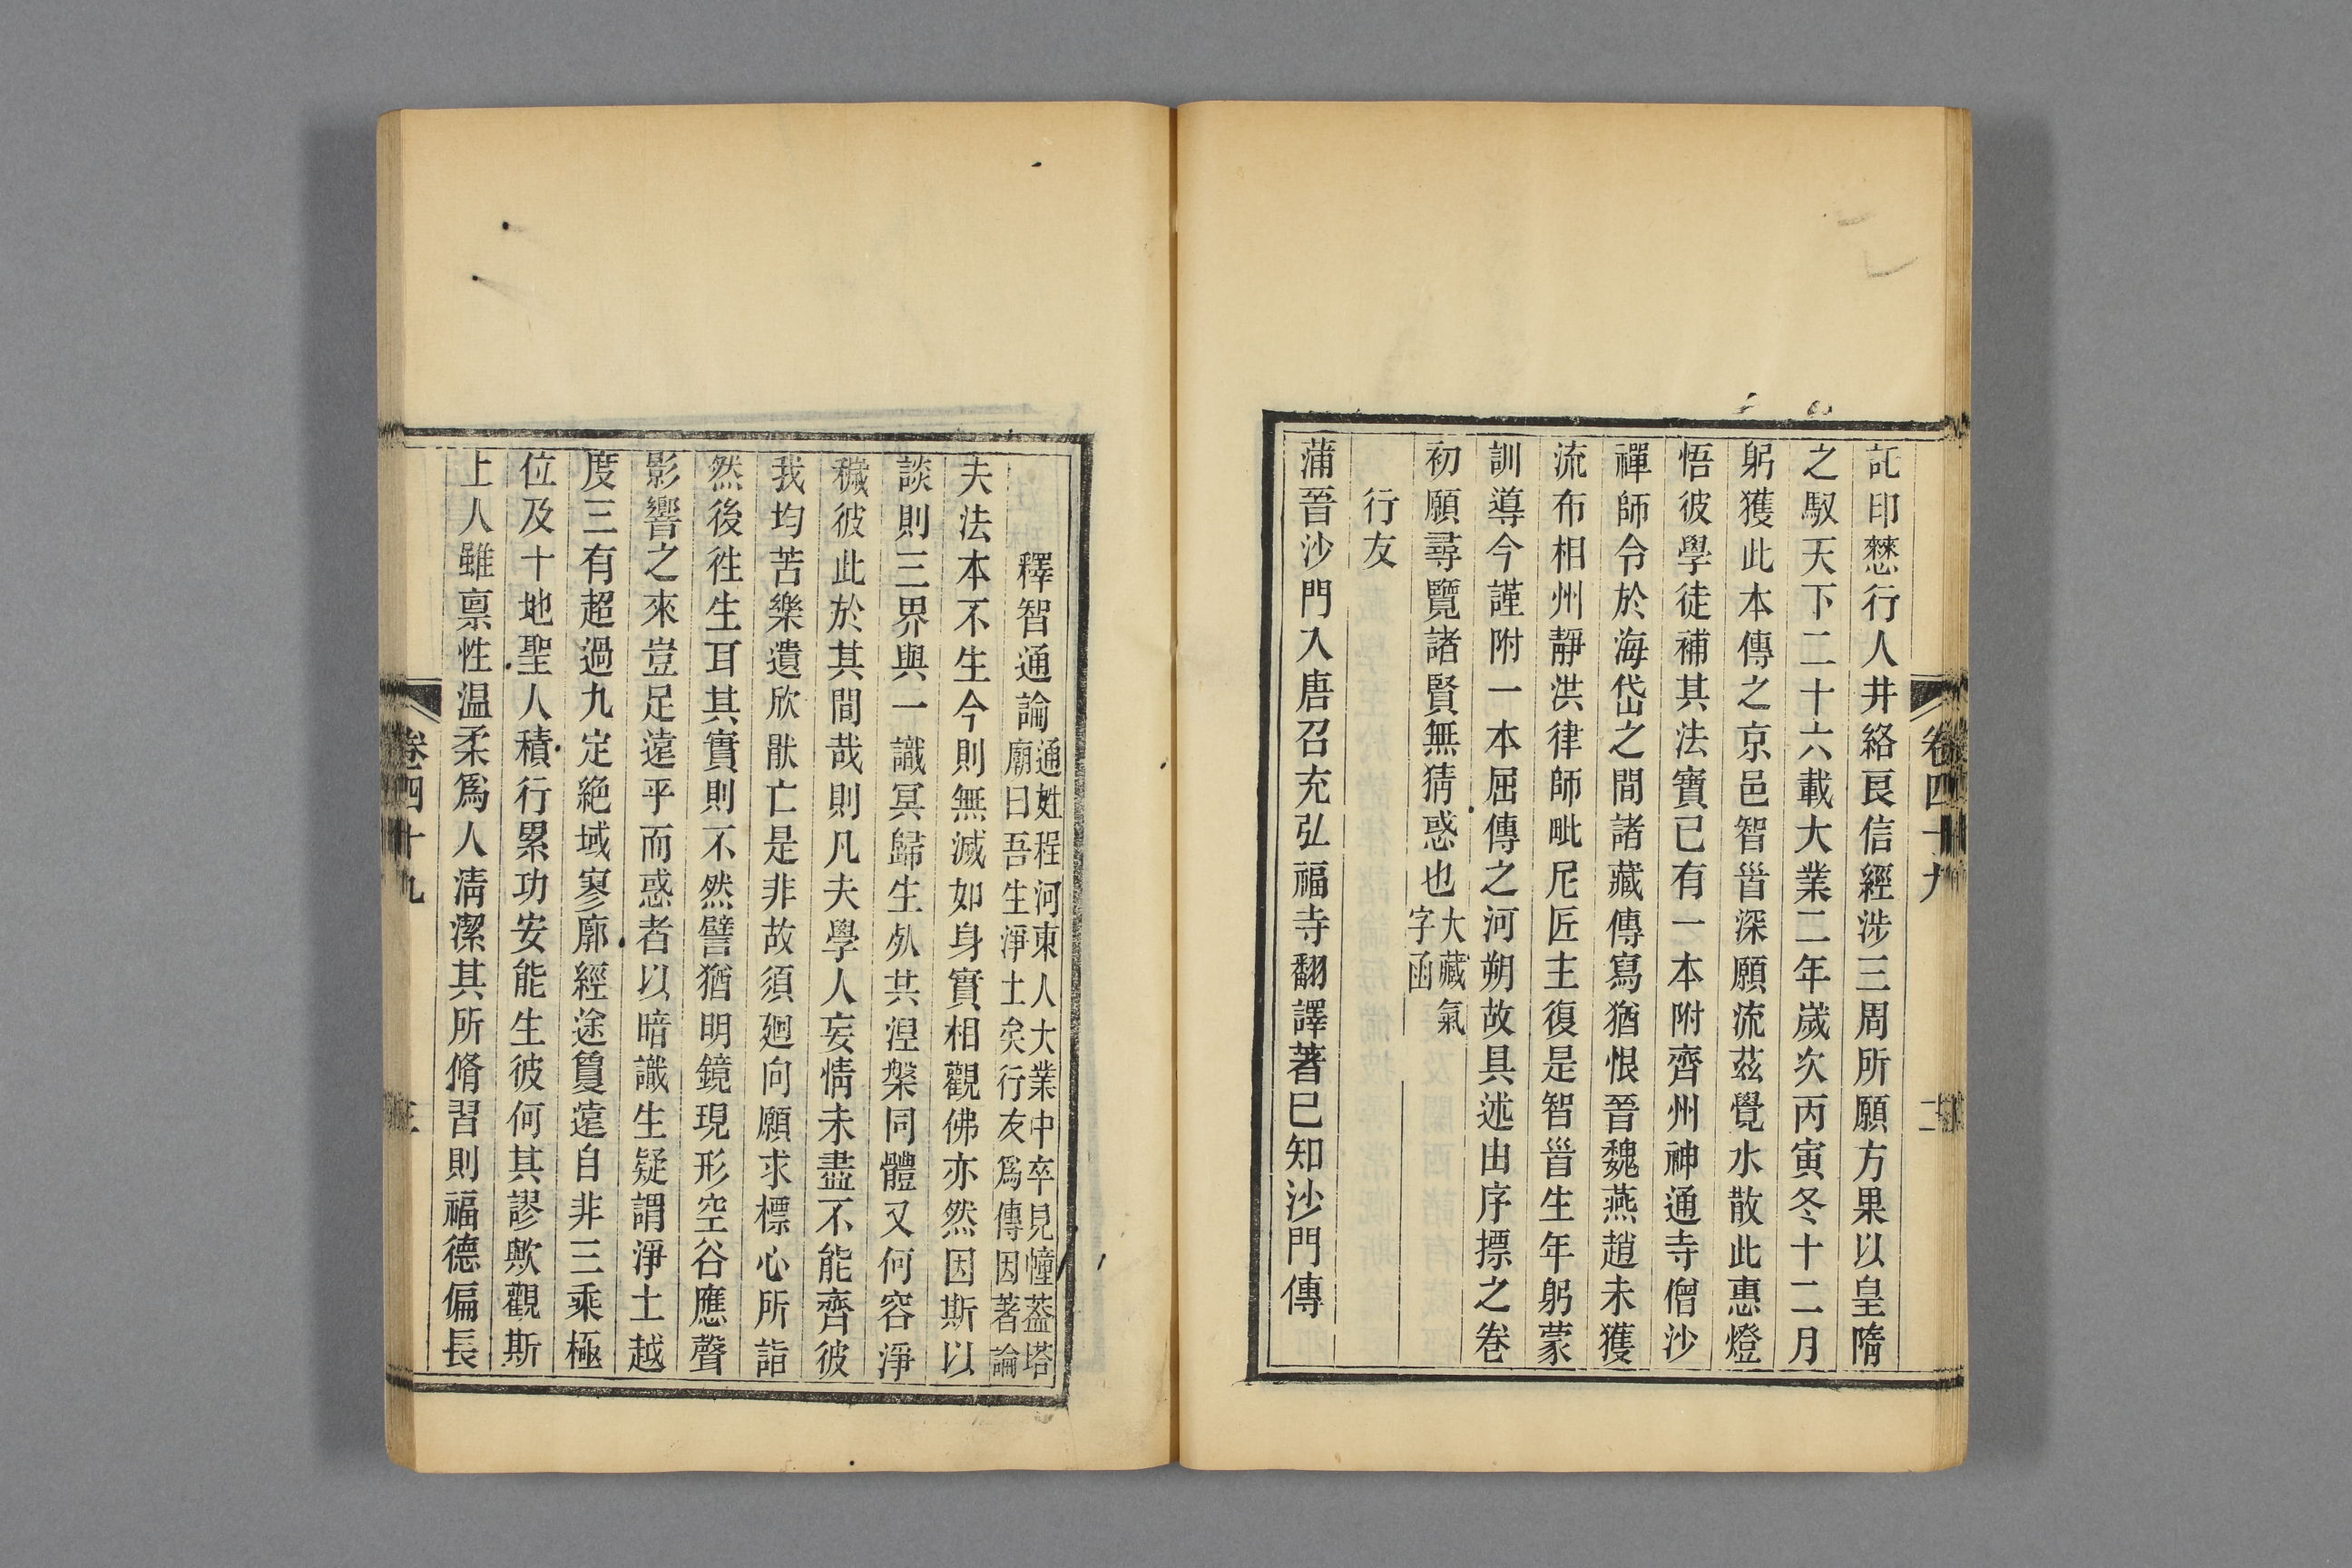 卷四十九
二
託印慭行人井絡良信經涉三周所願方果以皇隋
之馭天下二十六載大業二年歲次丙寅冬十二月
躬獲此本傳之京邑智首深願流茲覺水散此惠燈
悟彼學徒補其法寶已有一本附齊州神通寺僧沙
禪師令於海岱之間諸藏傳寫猶恨晉魏燕趙未獲
流布相州靜洪律師毗尼匠主復是智首生年躬蒙
訓導今謹附一本屈傳之河朔故具述由序摽之卷
初願尋覽諸賢無猜惑也大藏氣
字函
行友
蒲晉沙門入唐召充弘福寺翻譯著巳知沙門傳
釋智通論通姓程河東人大業中卒見幢葢塔
廟曰吾生淨土矣行友爲傳因著論
夫法本不生今則無滅如身實相觀佛亦然因斯以
談則三界與一識冥歸生死共湼槃同體又何容淨
穢彼此於其間哉則凡夫學人妄情未盡不能齊彼
我均苦樂遺欣猒亡是非故須廻向願求標心所詣
然後徃生耳其實則不然譬猶明鏡現形空谷應聲
影響之來豈足遠乎而惑者以暗識生疑謂淨土越
度三有超過九定絶域寥廓經途敻遠自非三乘極
位及十地聖人積行累功安能生彼何其謬歟觀斯
上人雖禀性温柔爲人清潔其所脩習則福德偏長
卷四十九
三